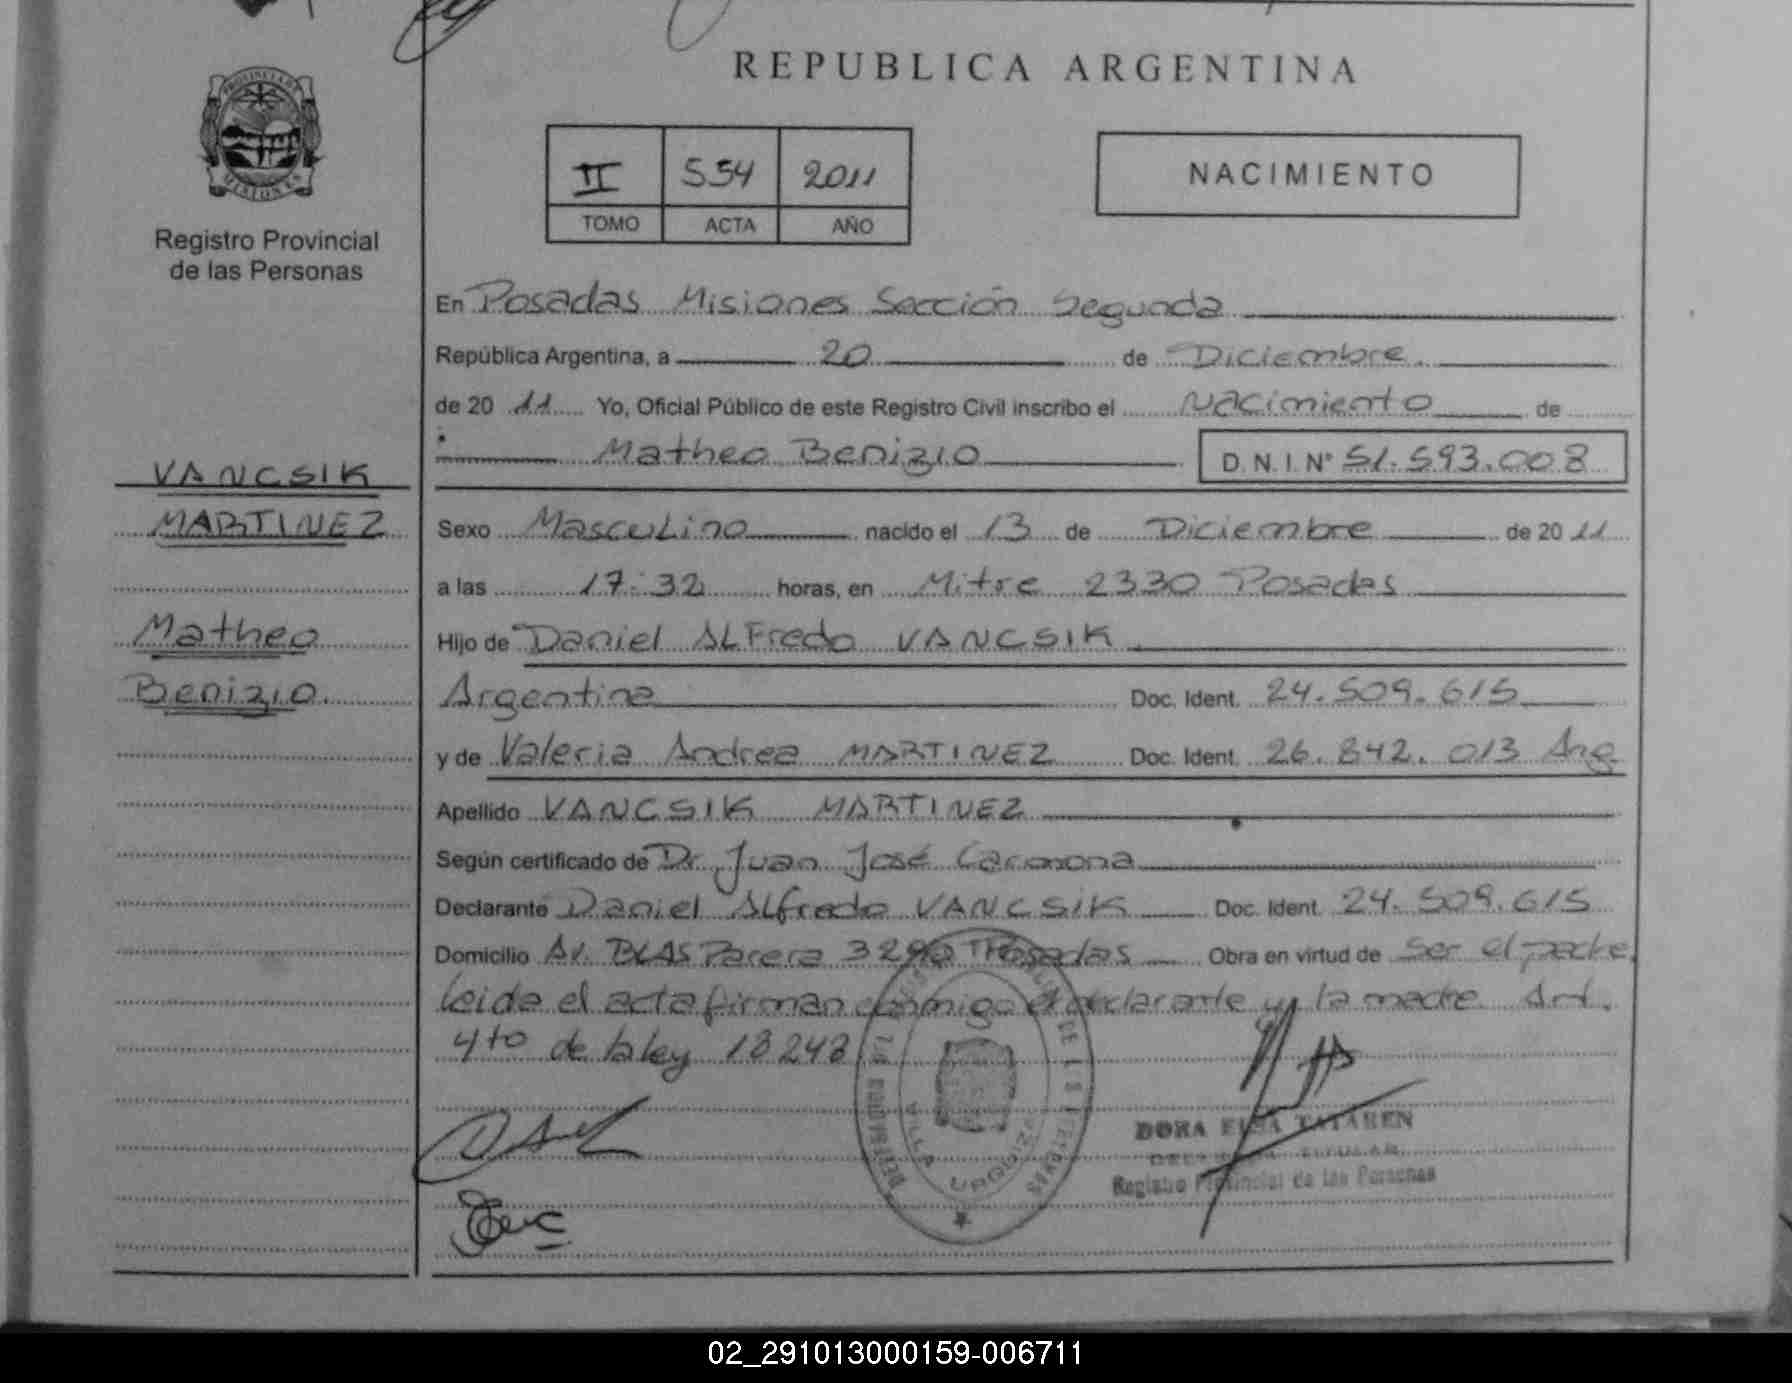 REPUBLICA ARGENTINA
PROVINCIA DE
MISIONES
Registro Provincial
de las Personas
II 554 2011
TOMO ACTA AÑO
NACIMIENTO
En Posadas Misiones Sección Segunda
República Argentina, a 20 de Diciembre
de 20 11 Yo, Oficial Público de este Registro Civil inscribo el Nacimiento de
Matheo Benizio D.N.I.Nº 51.593.008
VANCSIK
MARTINEZ
Matheo
Benizio
Sexo Masculino nacido el 13 de Diciembre de 20 11
a las 17:32 horas, en Mitre 2330 Posadas
Hijo de Daniel ALFredo VANCSIK
Argentina Doc. Ident. 24.509.615
y de Valeria Andrea MARTINEZ Doc. Ident. 26.842.013 Arg
Apellido VANCSIK MARTINEZ
Según certificado de Dr. Juan José Carmona
Declarante Daniel ALfredo VANCSIK Doc. Ident. 24.509.615
Domicilio Av. BLAS Parera Posadas Obra en virtud de ser el padre,
leida el acta firman conmigo el declarante y la madre Art.
4to de la ley 18248
VILLA URQUIZA
DORA ELSA TATAREN
Registro Provincial de las Personas
02_291013000159-006711